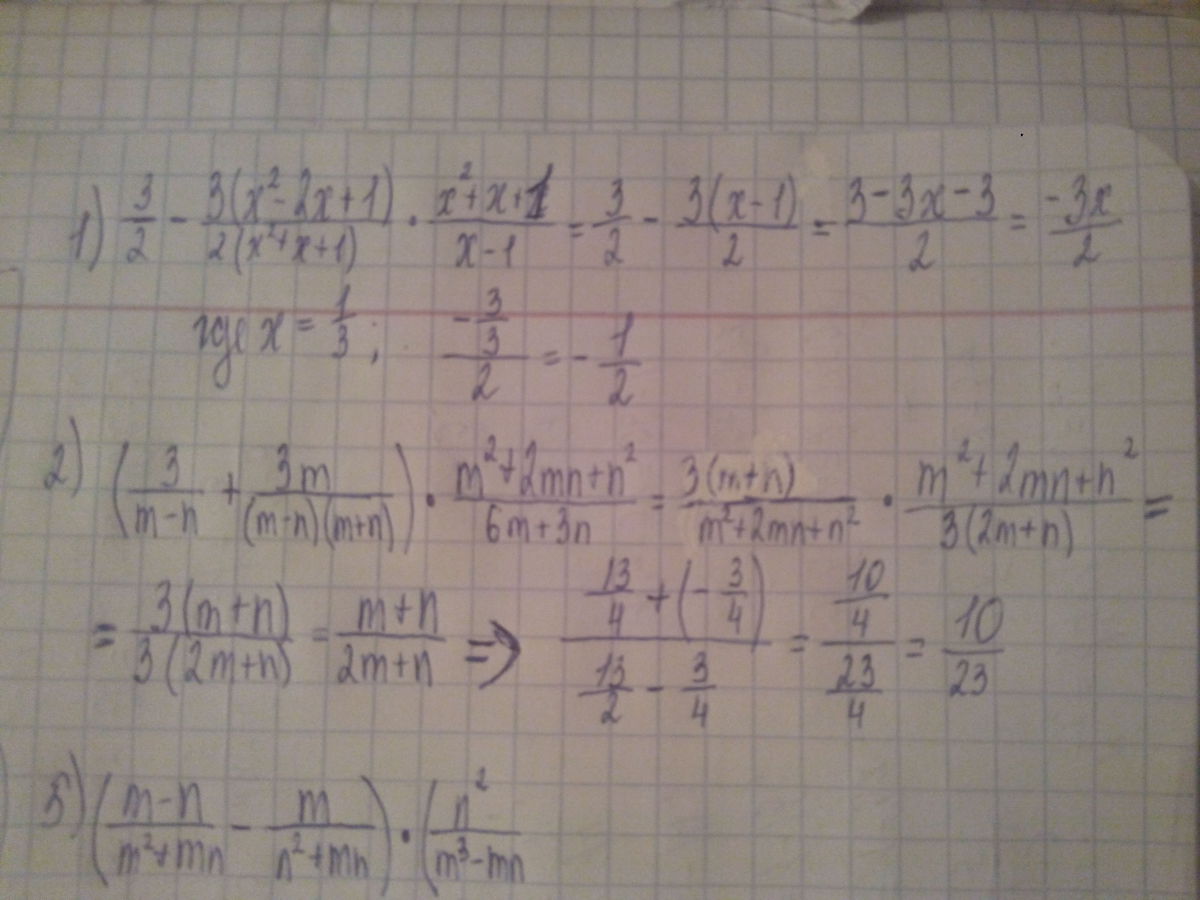 1) 3/2 - 3(x²-2x+1)/2(x²+x+1) · x²+x+1/x-1 = 3/2 - 3(x-1)/2 = 3-3x-3/2 = -3x/2
где x = 1/3 ; -3/3/2 = -1/2
2) (3/m-n + 3m/(m-n)(m+n)) · m²+2mn+n²/6m+3n = 3(m+n)/m²+2mn+n² · m²+2mn+n²/3(2m+n) =
= 3(m+n)/3(2m+n) = m+n/2m+n => 13/4+(-3/4)/13/2-3/4 = 10/4/23/4 = 10/23
5) (m-n/m²+mn - m/n²+mn) · (n²/m³-mn